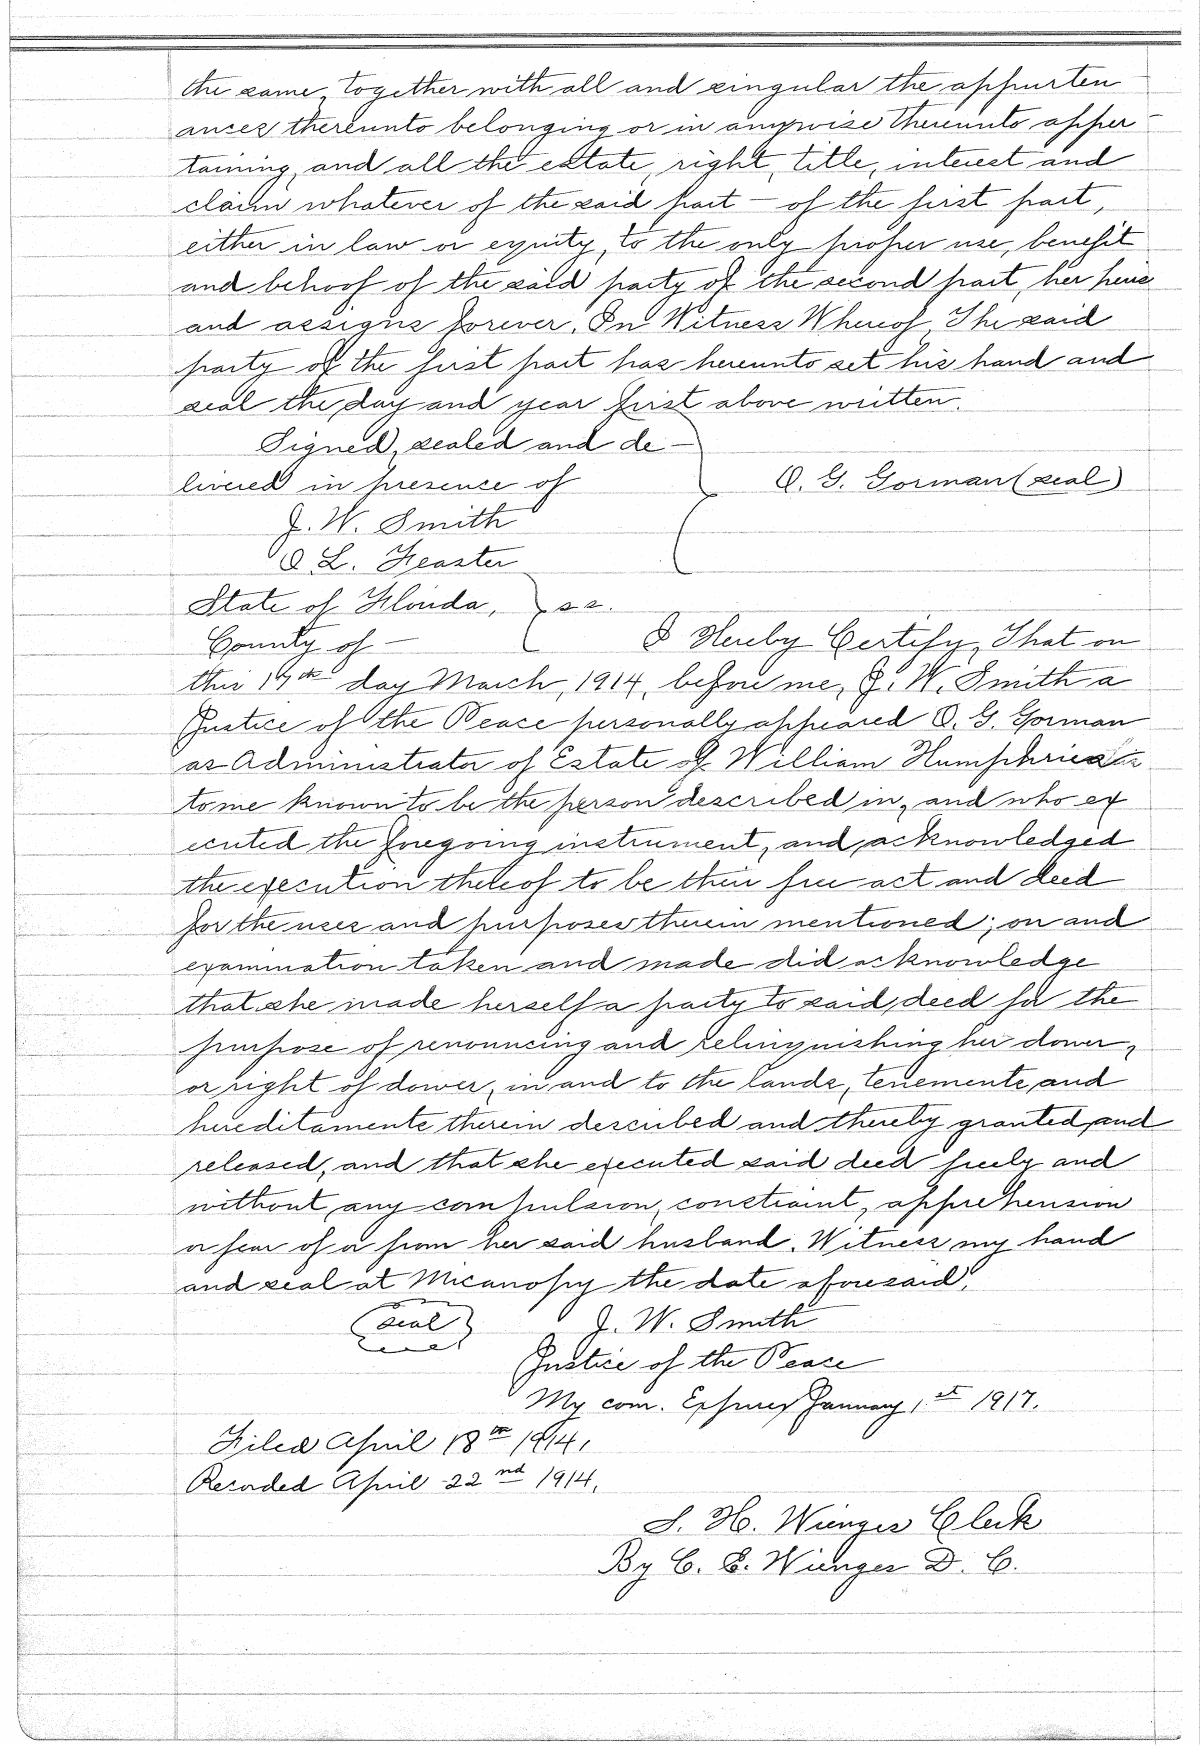 the same, together with all and singular the appurten
ances thereunto belonging or in anywise thereunto apper-
taining, and all the estate, right, title, interest and
claim whatever of the said part - of the first part,
either in law or equity, to the only proper use, benefit
and behoof of the said party of the second part, her heirs
and assigns forever. In Witness Whereof, The said
party of the first part has hereunto set his hand and
seal the day and year first above written.
Signed, sealed and de-
livered in presence of
O. G. Gorman (seal)
J. W. Smith
O. L. Feaster
State of Florida, } ss.
County of - I Hereby Certify, That on
this day March, 1914, before me, J. W. Smith a
Justice of the Peace personally appeared O. G. Gorman
as Administrator of Estate of William Humphries
to me known to be the person described in, and who ex
ecuted the foregoing instrument, and acknowledged
the execution thereof to be their free act and deed
for the uses and purposes therein mentioned; on and
examination taken and made did acknowledge
that she made herself a party to said deed for the
purpose of renouncing and relinquishing her dower,
or right of dower, in and to the lands, tenements and
hereditaments therein described and thereby granted and
released, and that she executed said deed freely and
without any compulsion, constraint, apprehension
or fear of or from her said husband. Witness my hand
and seal at Micanopy the date aforesaid.
(seal) J. W. Smith
Justice of the Peace
My com. Expires January 1st 1917.
Filed April 18th 1914,
Recorded April 22nd 1914,
S. H. Wienges Clerk
By C. E. Wienges D. C.